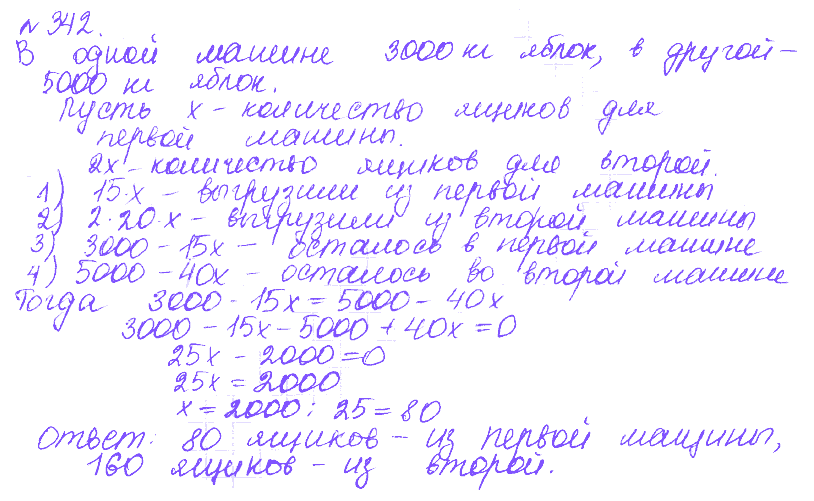 № 342.
В одной машине 3000 кг яблок, в другой –
5000 кг яблок.
Пусть x – количество ящиков для
первой машины.
2x – количество ящиков для второй.
1) 15·x – выгрузили из первой машины
2) 2·20·x – выгрузили из второй машины
3) 3000 – 15x – осталось в первой машине
4) 5000 – 40x – осталось во второй машине
Тогда 3000 - 15x = 5000 – 40x
3000 – 15x – 5000 + 40x = 0
25x – 2000 = 0
25x = 2000
x = 2000 : 25 = 80
Ответ: 80 ящиков – из первой машины,
160 ящиков – из второй.